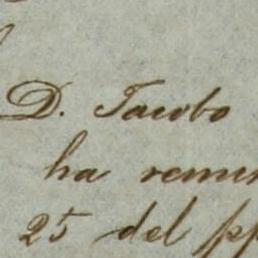 D. Jacobo
ha
25 del pp